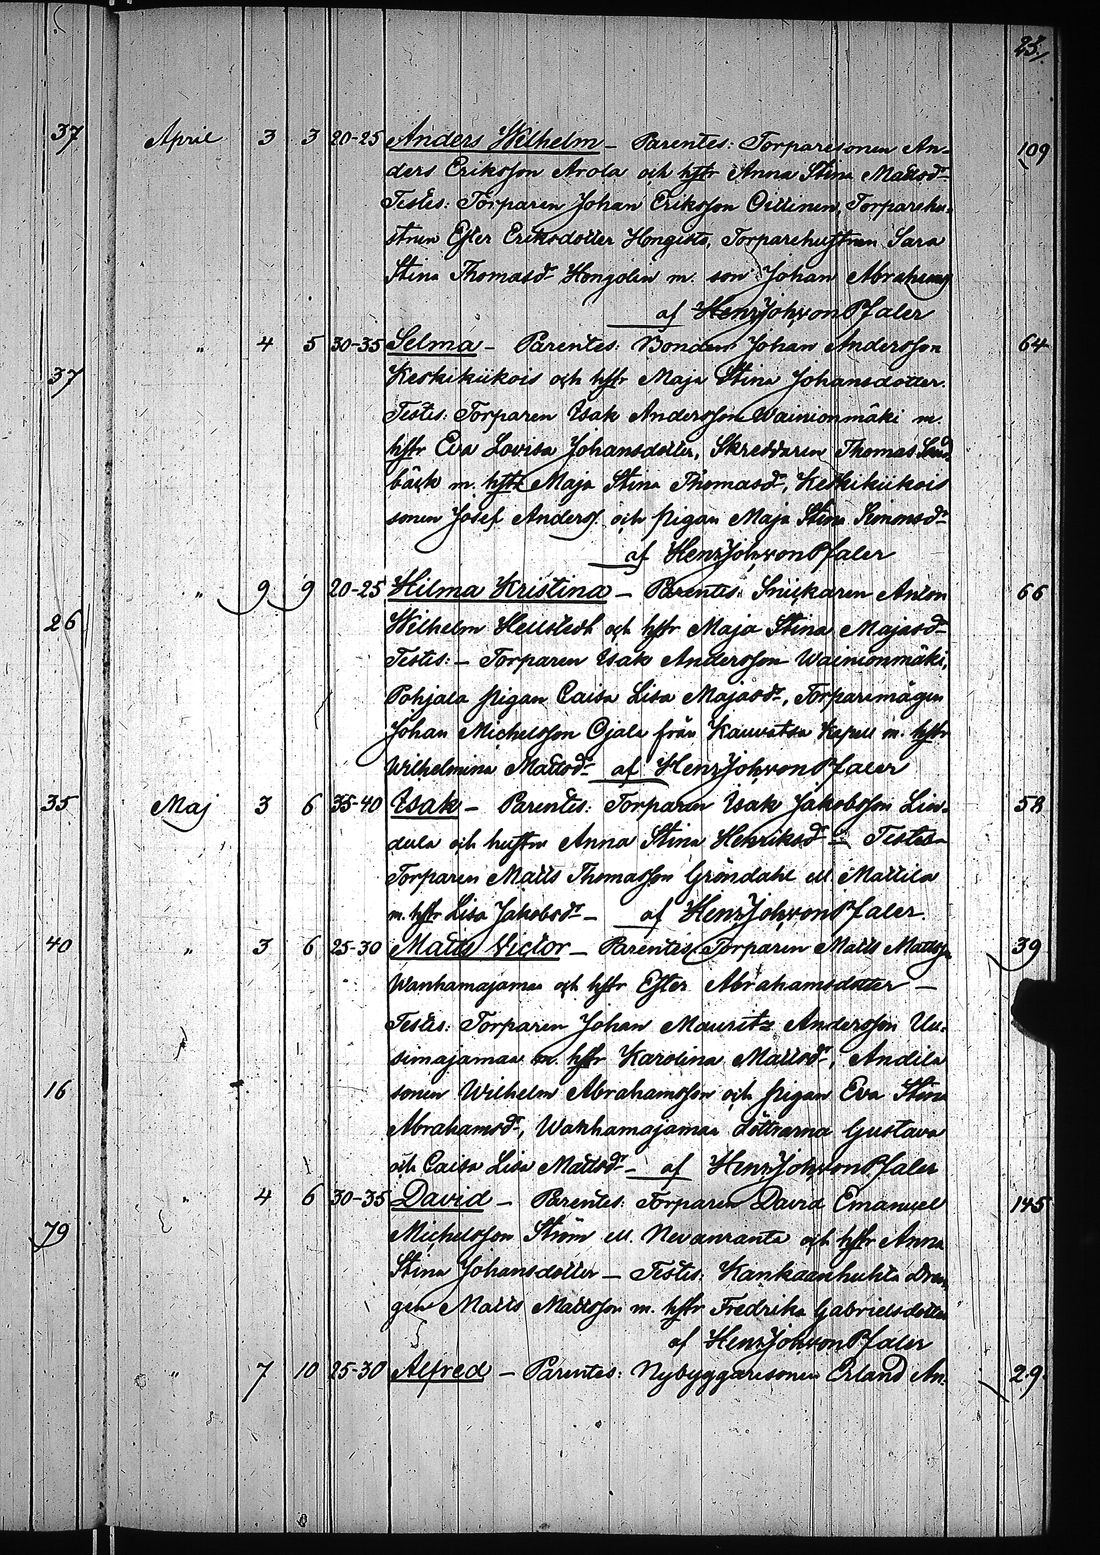 25.
37 April 3 3 20-25 Anders Wilhelm – Parentes: Torparesonen An- 109
ders Eriksson Arola och hstr Anna Stina Mattsdr
Testes: Torparen Johan Eriksson Oittinen, Torparehu-
strun Ester Eriksdotter Hongisto, Torparehustrun Sara
Stina Thomasdr Hongolin m. son Johan Abrahams
af HenrJohvonPfaler
„ 4 5 30-35 Selma – Parentes: Bonden Johan Andersson 64
37 Keskikiikois och hstr Maja Stina Johansdotter.
Testes: Torparen Isak Andersson Wainionmäki m.
hstr Eva Lovisa Johansdotter, Skreddaren Thomas Lind-
bäck m. hstr Maja Stina Thomasdr, Keskikiikois
sonen Josef Anderss. och pigan Maja Stina Simonsdr
af HenrJohvonPfaler
„ 9 9 20-25 Hilma Kristina – Parentes: Snickaren Anton 66
26 Wilhelm Hellstedt och hstr Maja Stina Majasdr
Testes: – Torparen Isak Andersson Wainionmäki,
Pohjala pigan Caisa Lisa Majasdr, Torparemågen
Johan Michelsson Ojala från Kauvatsa Kapell m. hstr
Wilhelmina Mattsdr af HenrJohvonPfaler
35 Maj 3 6 35-40 Isak – Parentes: Torparen Isak Jakobsson Lin- 58
dula och hustru Anna Stina Henriksdr – Testes –
Torparen Matts Thomasson Gröndahl ell Mattila
m. hstr Lisa Jakobsdr – af HenrJohvonPfaler.
40 „ 3 6 25-30 Matts Victor – Parentes: Torparen Matts Mattss 39
Wanhamajamaa och hstr Ester Abrahamsdotter –
Testes: Torparen Johan Mauritz Andersson Uu-
simajamaa m. hstr Karolina Mattsdr, Andila
16 sonen Wilhelm Abrahamsson och pigan Eva Stina
Abrahamsdr, Wanhamajamaa döttrarna Gustava
och Caisa Lisa Mattsdr – af HenrJohvonPfaler
„ 4 6 30-35 David – Parentes: Torparen David Emanuel 145
79 Michelsson Ström ell. Nevanranta och hstr Anna
Stina Johansdotter – Testes: Kankaanhuhta drän-
gen Matts Mattsson m. hstr Fredrika Gabrielsdotter
af HenrJohvonPfaler
„ 7 10 25-30 Alfred – Parentes: Nybyggaresonen Erland An- 29